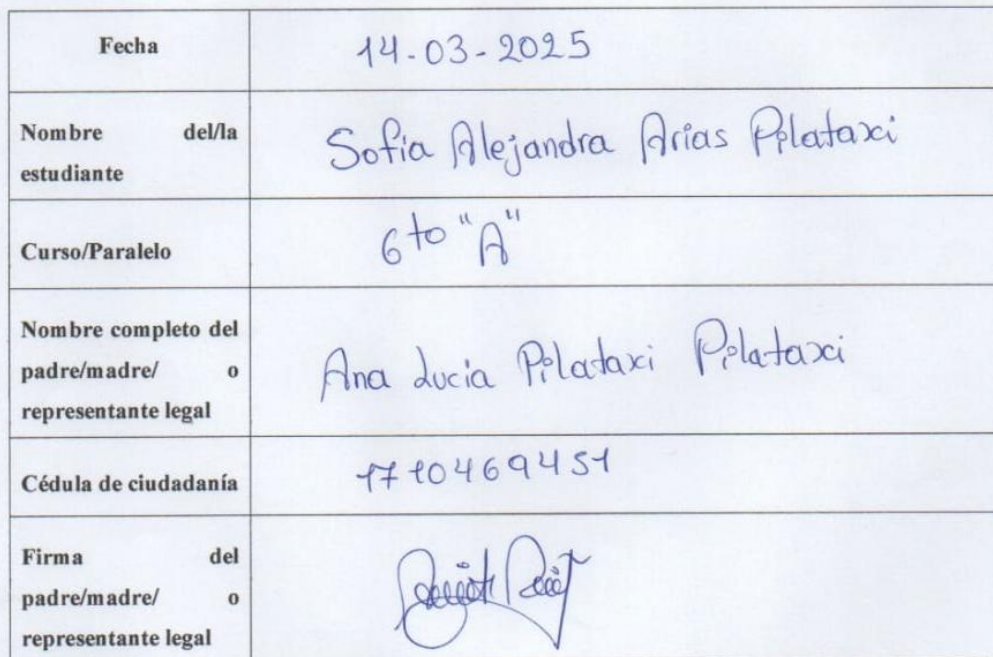 Fecha
14-03-2025
Nombre del/la
estudiante
Sofia Alejandra Arias Pilataxi
Curso/Paralelo
6to "A"
Nombre completo del
padre/madre/ o
representante legal
Ana Lucia Pilataxi Pilataxi
Cédula de ciudadanía
1710469451
Firma del
padre/madre/ o
representante legal